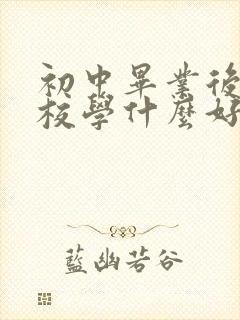 初中畢業後
校學什麼好
藍幽若谷